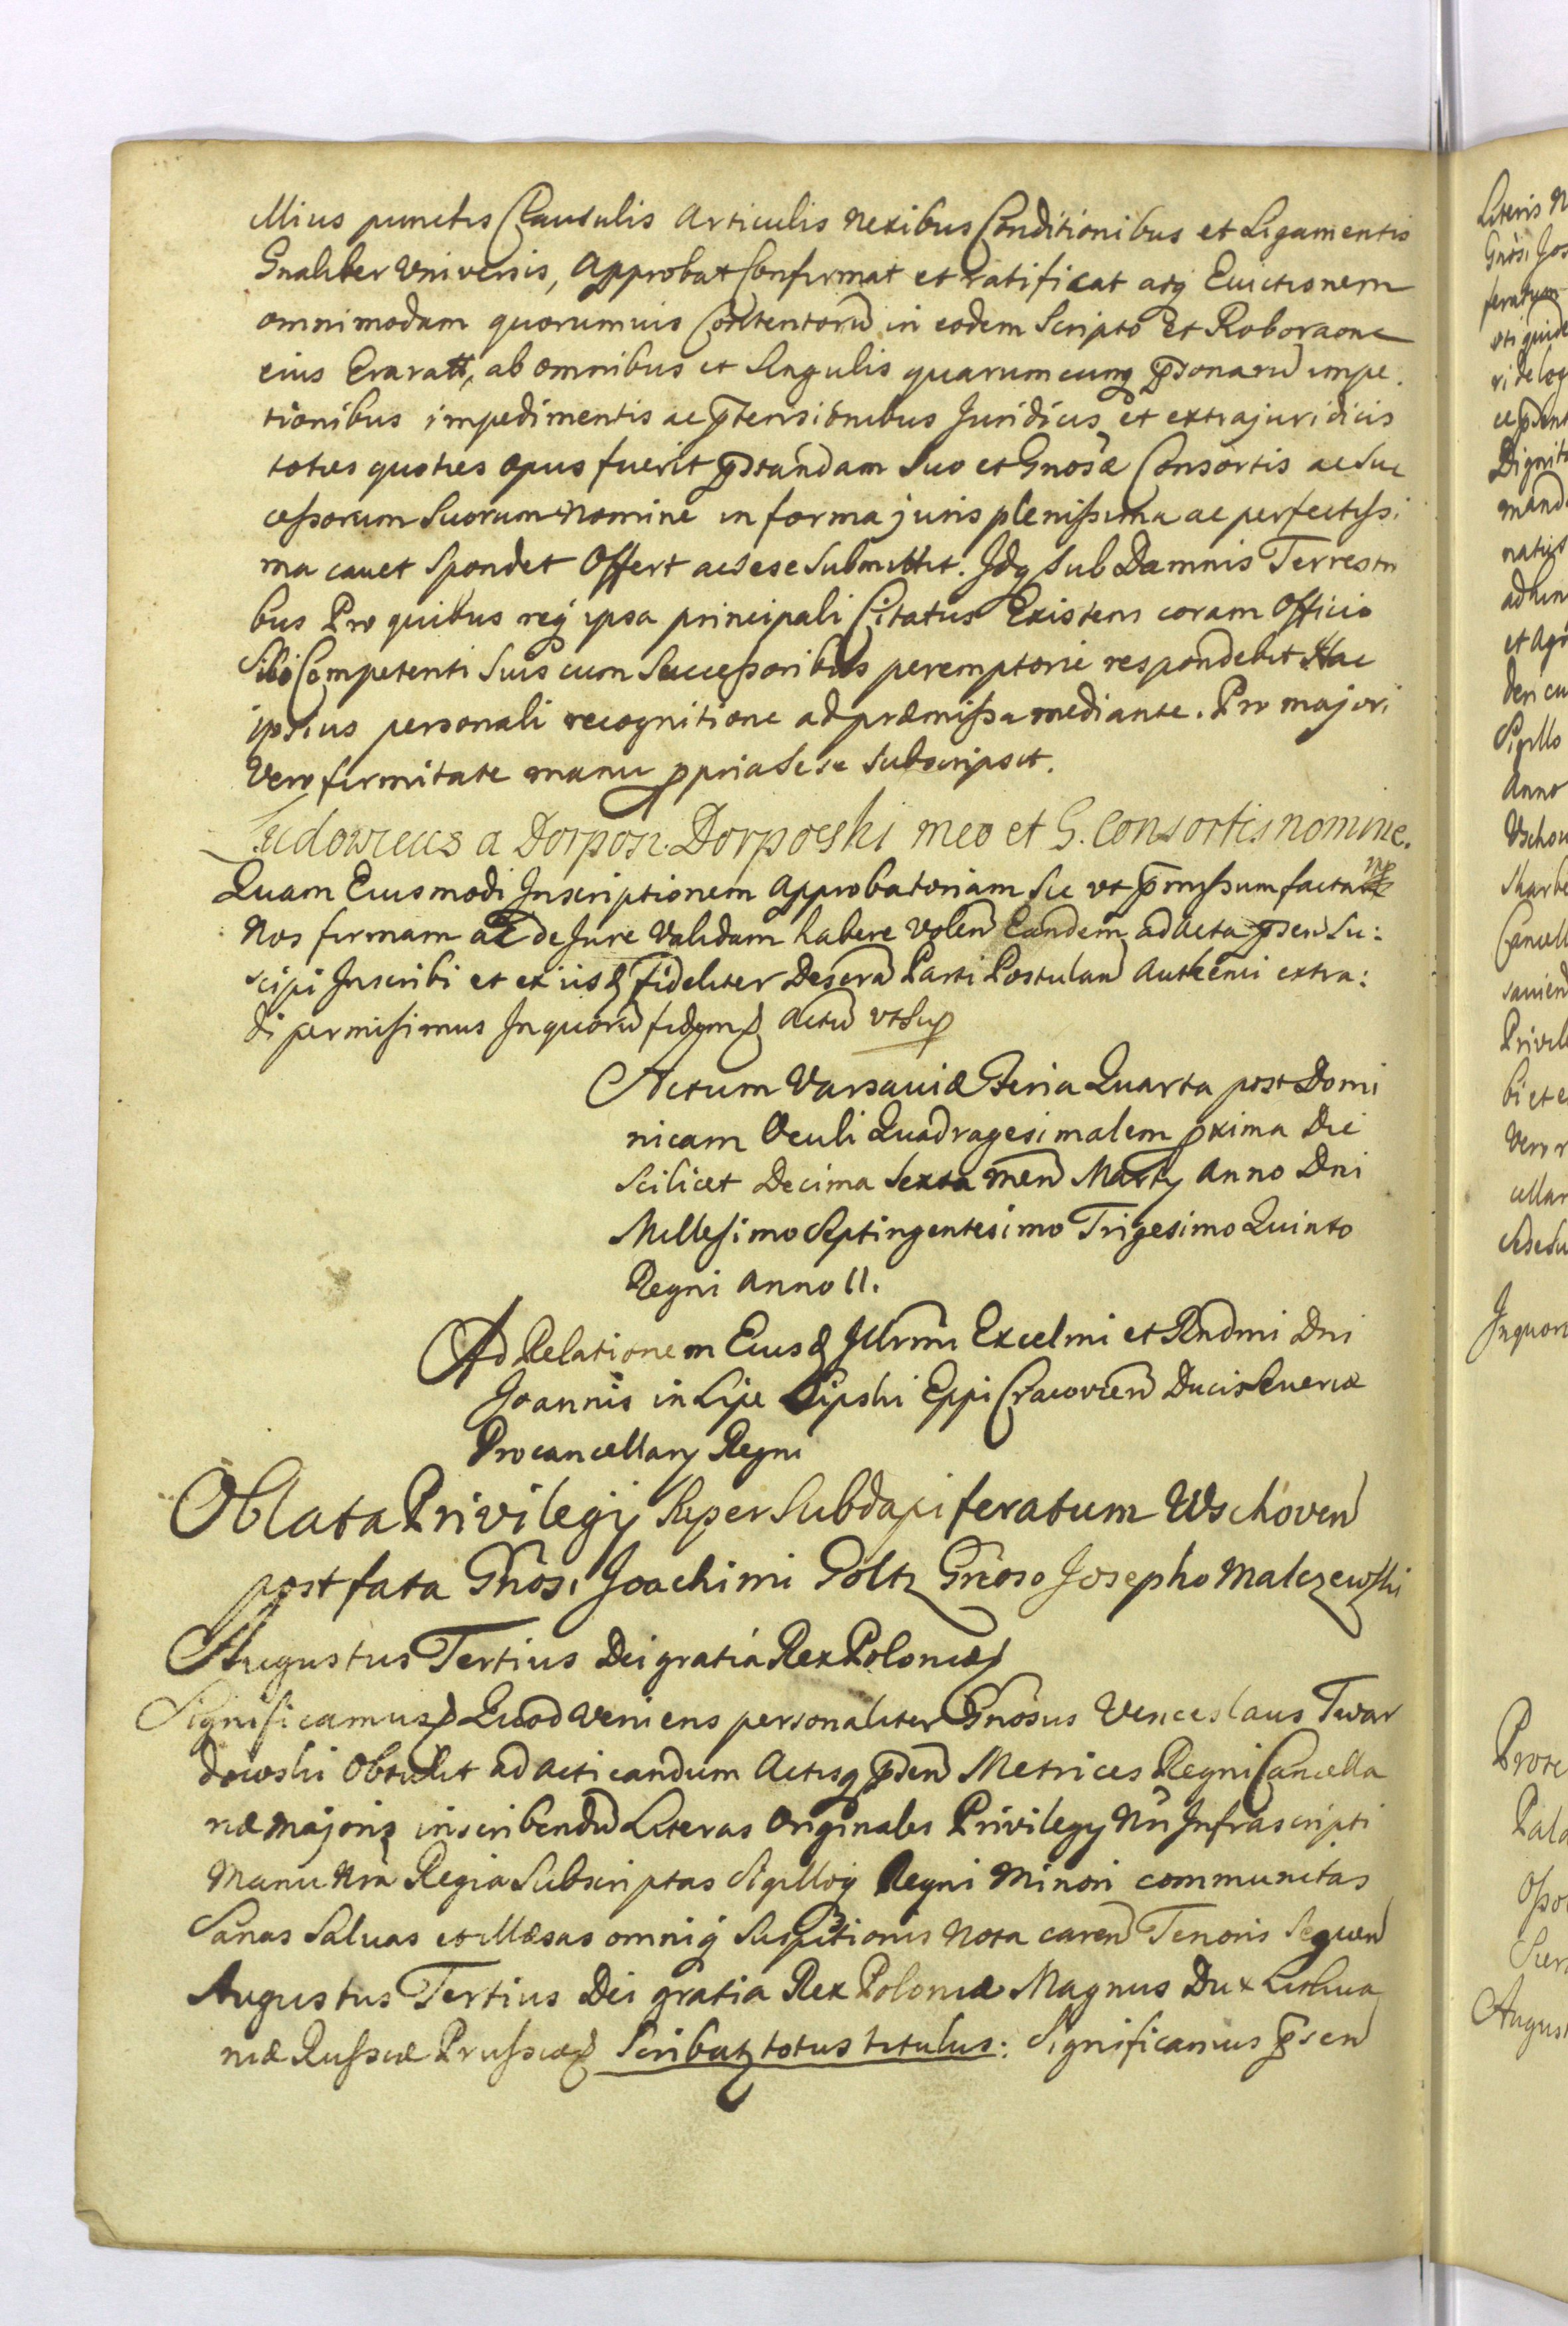 illius punctis Clausulis Articulis Nexibus Conditionibus et Ligamentis
Gnaliter Universis, Approbat Confirmat et ratificat atq Evictionem
omnimodam quorumvis Contentorũ in eodem Scripto et Roboraone
eius Eraratt, ab omnibus et Singulis quarumcunq p̄sonarũ impe.
tionibus impedimentis ac p̄tensionibus Juridicis et extrajuridicis
toties quoties opus fuerit p̄standam Suo et Gnosæ Consortis ac Suc
cessorum Suorum Nomine in forma juris plenissima ac perfectissi
ma cavet Spondet Offert ac sese Submittit. Idq Sub Damnis Terrestri
bus Pro quibus req ipsa principali Citatus Existens coram Officio
Sibi Competenti Suis cum Successoribus peremptorie respondebit Hac
ipsius personali recognitione ad præmissa mediante. Pro majori
Vero firmitate manu ppria Sese Subscripsit.
Ludovicus a Dorpos. Dorposki meo et G. Consortis nomine.
Quam Eiusmodi Inscriptionem Approbatoriam Sic ut p̄missum factam
Nos firmam ac de Jure Validam habere Volen Eandem ad Acta p̄sen Su:
scipi Inscribi et ex iisd fideliter Desera Parti Postulan Authenti extra:
di permisimus In quorũ fidem Actũ ut Sup
Actum Varsaviæ Feria Quarta post Domi
nicam Oculi Quadragesimalem pxima Die
Scilicet Decima Sexta men Martij Anno Dni
Millesimo Septingentesimo Trigesimo Quinto
Regni Anno II.
Ad Relationem Eiusd Illrmi Excelmi et Rndmi Dni
Joannis in Lipe Lipski Eppi Cracovien Ducis Severiæ
Procancellarij Regni
Oblata Privilegij Super Subdapiferatum Wschoven
post fata Gnosi Joachimi Goltz Gnoso Josepho Malczewski
Augustus Tertius Dei gratia Rex Poloniæ
Significamus Quod Veniens personaliter Gnosus Venceslaus Twar
dowski Obtulit ad Acticandum Actisq p̄sen Metrices Regni Cancella
riæ Majoris inscribendũ Literas Originales Privilegij Nri Infrascripti
Manu Nra Regia Subscriptas Sigilloq Regni Minori communitas
Sanas Salvas et illæsas omniq Suspitionis Nota caren Tenoris Sequen
Augustus Tertius Dei gratia Rex Poloniæ Magnus Dux Lithua
niæ Russiæ Prussiæ Scribatz totus titulus: Significamus p̄sen
Literis N
Gnosi Jos
feratum
Dignita
mand
adhin
et ago
den cu
Sigillo
Anno
Wschov
Cancell
Privile
bi et e
Vero r
cellar
In quor
Prote
Pala
August